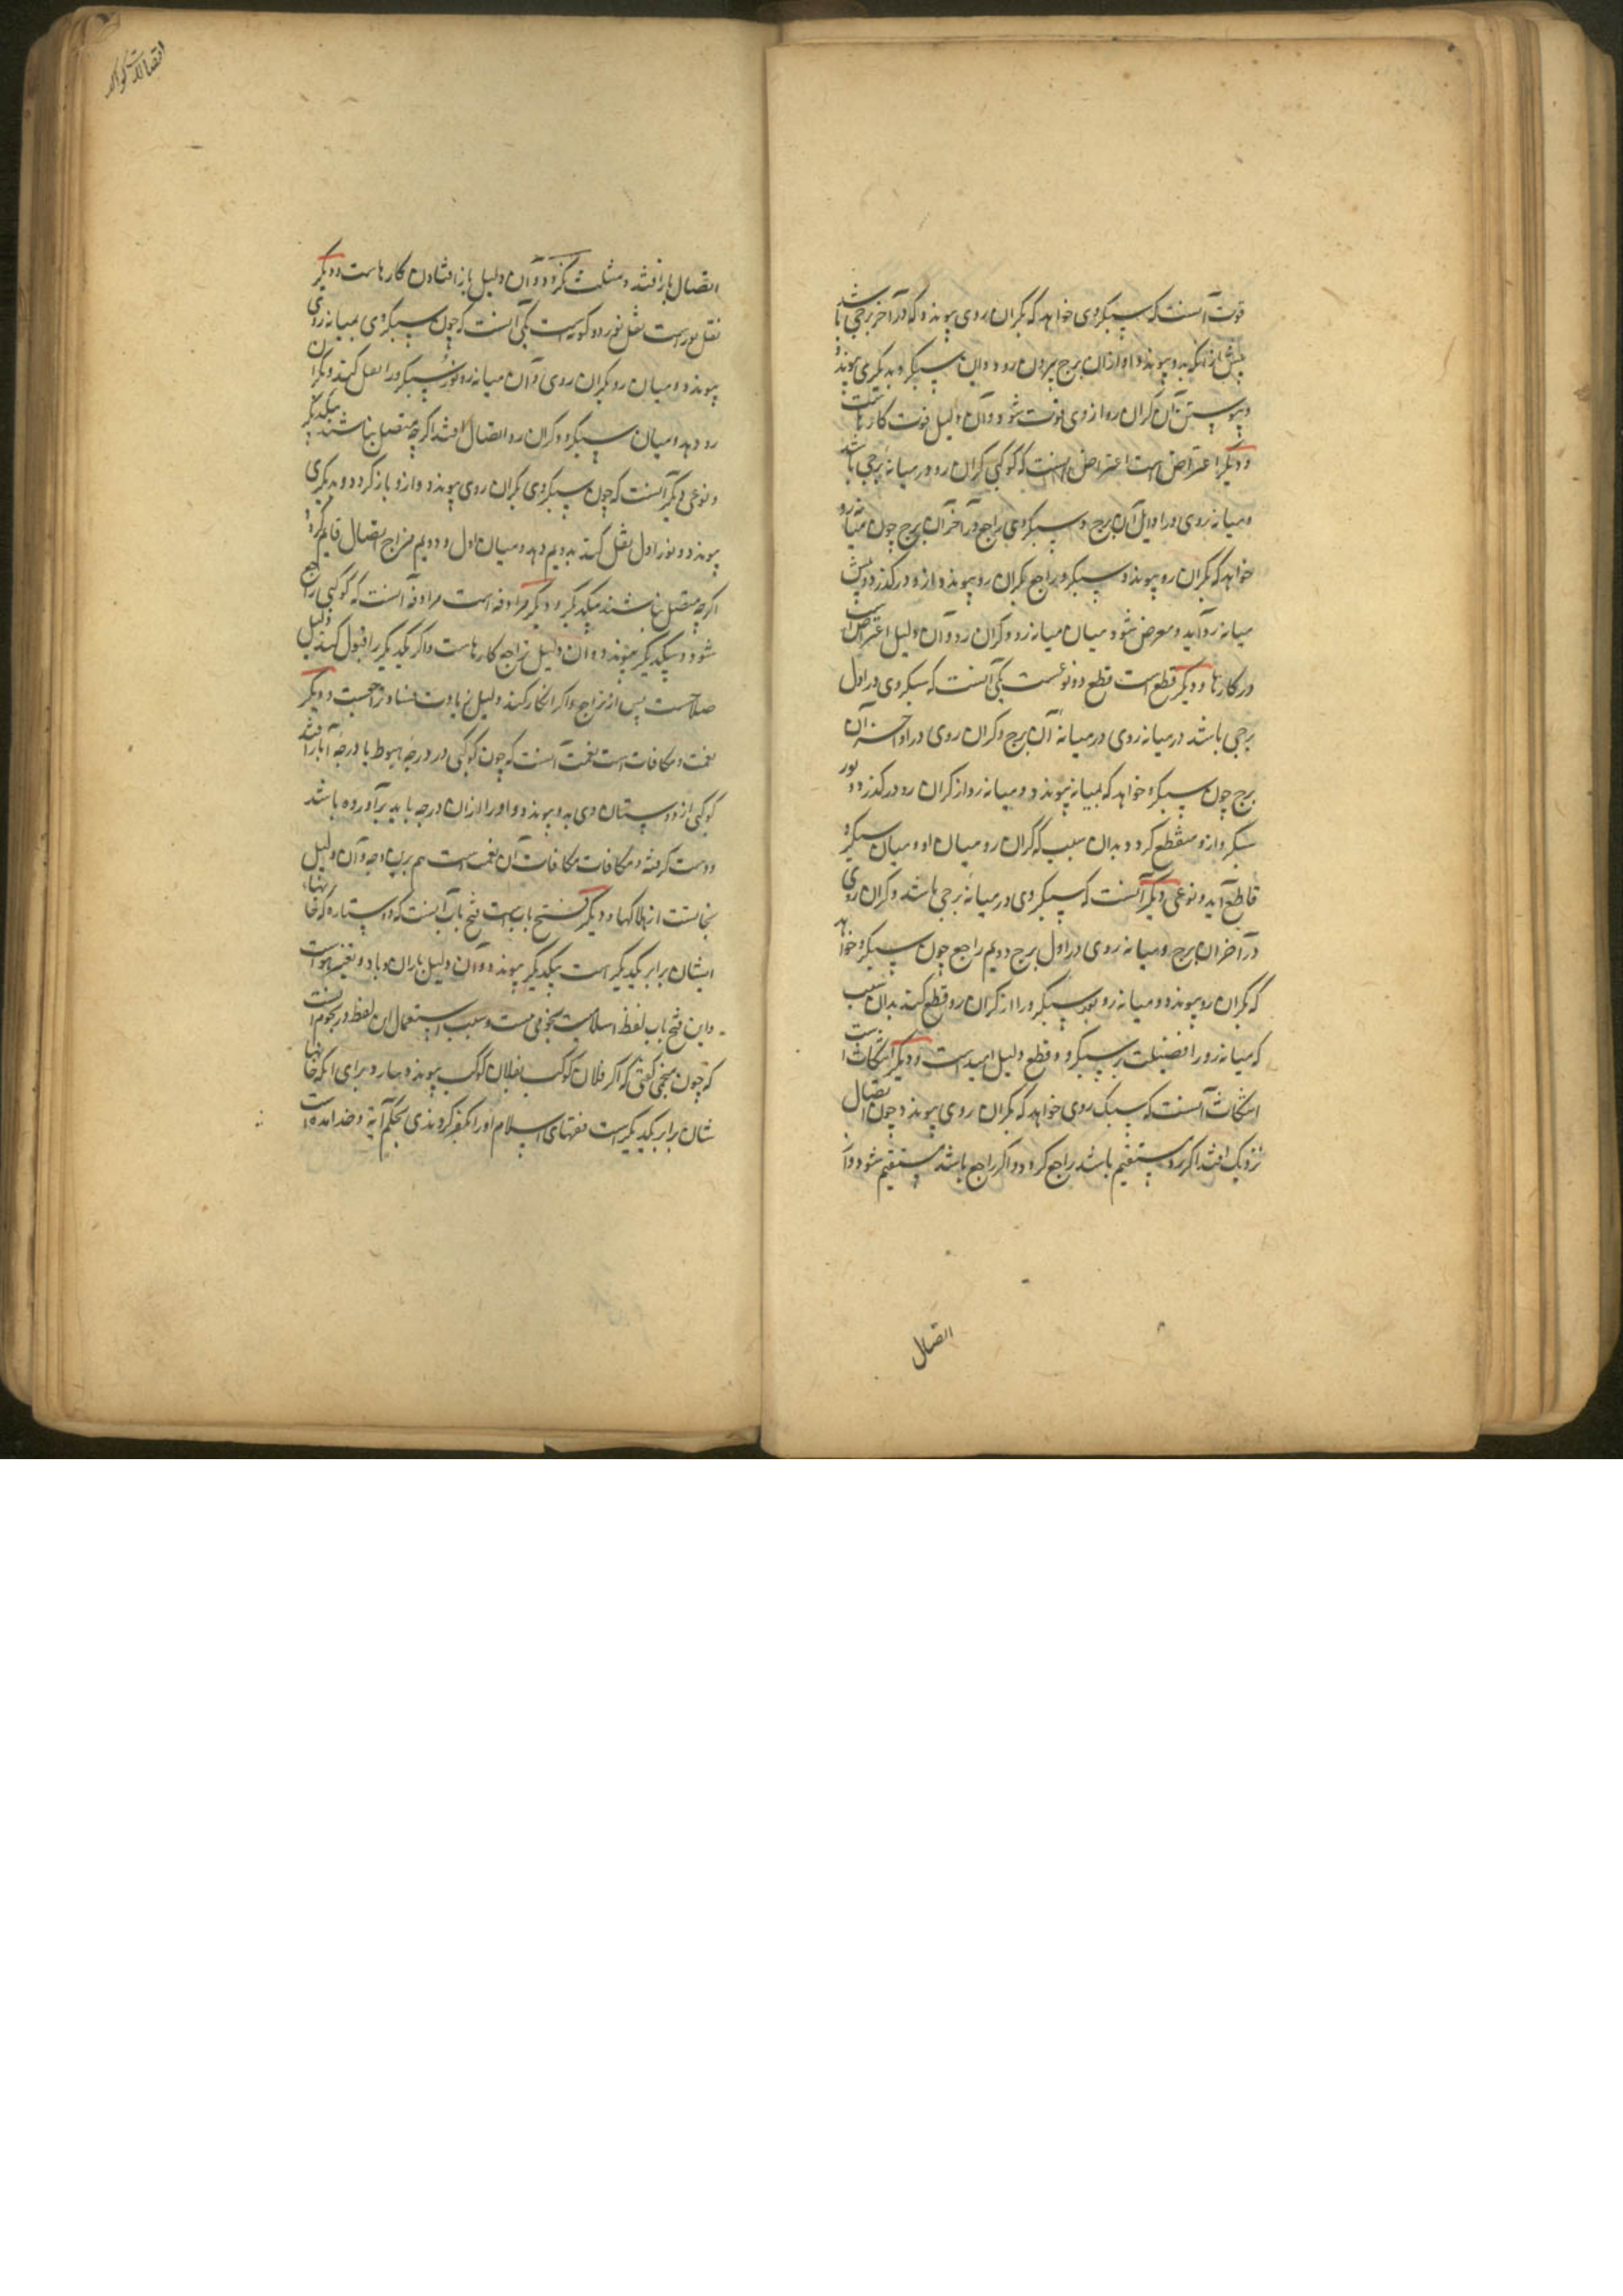 قوت آنست که سبکروی خواهد که بگران روی پیوندد که در آخر برجی باشد
پیش از انکه بدو پیوندد او ازان برج بیرون رود و این سبکرو بدیگری پیوندد
و پیوستن آن گران رو از وی فوت شود و آن دلیل فوت کارهاست
و دیگر اعتراض است اعتراض آنست که کوکبی گران رو در میانه برجی باشد
و میانه روی در اوایل آن برج و سبکروی راجع در آخر آن برج چون میانه رو
خواهد که بگران رو پیوندد سبکرو راجع بگران رو پیوندد و ازو درگذرد و پیش
میانه رو آید و معرض شود میان میانه رو و گران رو و آن دلیل اعتراض است
در کارها و دیگر قطع است قطع دو نوعست یکی آنست که سبکروی در اول
برجی باشد و میانه روی در میانه آن برج و گران روی در اواخر آن
برج چون سبکرو خواهد که بمیانه پیوندد و میانه رو از گران رو درگذرد و نور
سبکرو ازو منقطع گردد بدان سبب که گران رو میان او و میان سبکرو
قاطع آید و نوعی دیگر آنست که سبکروی در میانه برجی باشد و گران روی
در آخر آن برج و میانه روی در اول برج دویم راجع چون سبکرو خواهد
که بگران رو پیوندد و میانه رو بعد سبکرو را از گران رو قطع کند بدان سبب
که میانه رو را فضیلت بر سبکرو و قطع دلیل امیدست و دیگر انتکاث است
انتکاث آنست که سبک روی خواهد که بگران روی پیوندد چون اتصال
نزدیک افتد اگر رو مستقیم باشد راجع گردد و اگر راجع باشد مستقیم شود و آن
اتصال
اتصالات کواکب
اتصال باز افتد و منتکث گردد و آن دلیل باز افتادن کارهاست و دیگر
نقل نورست نقل نور دو گونه است یکی آنست که چون سبکروی بمیانه روی
پیوندد و میان رو بگران روی و آن میانه رو نور سبکرو را نقل کند و بگران
رو دهد و میان سبکرو و گران رو اتصال افتد اگرچه متصل نباشند بیکدیگر
و نوعی دیگر آنست که چون سبکروی بگران روی پیوندد و ازو باز گردد و بدیگری
پیوندد و نور اول نقل کند بدویم دهد و میان اول و دویم مزاج اتصال قایم گردد
اگرچه متصل نباشند بیکدیگر و دیگر مرادفه است مرادفه آنست که کوکبی راجع
شود و بیکدیگر پیوندد و آن دلیل تراجع کارهاست و اگر یکدیگر را قبول کنند دلیل
صلاحست پس از تراجع و اگر انکار کند دلیل زیادت فساد تراجعست و دیگر
نعمت و مکافات است نعمت آنست که چون کوکبی در درجه هبوط یا درجه آبار افتد
کوکبی از دوستان وی بدو پیوندد و او را ازان درجه باید برآورده باشد
و دست گرفته و مکافات مکافات آن نعمتست هم برین وجه و آن دلیل
نجاتست از هلاکها و دیگر فتح باب است فتح باب آنست که دو ستاره که خانهاء
ایشان برابر یکدیگر است بیکدیگر پیوندد و آن دلیل باران و باد و تغیر هواست
و این فتح باب لفظ اسلامیست نجومی نیست و سبب استعمال این لفظ در نجوم آنست
که چون منجمی گفتی که اگر فلان کوکب بفلان کوکب پیوندد ببارد برای آنکه خانها
شان برابر یکدیگر است فقهای اسلام او را تکفیر کردندی بحکم آیه و خدا آمده است